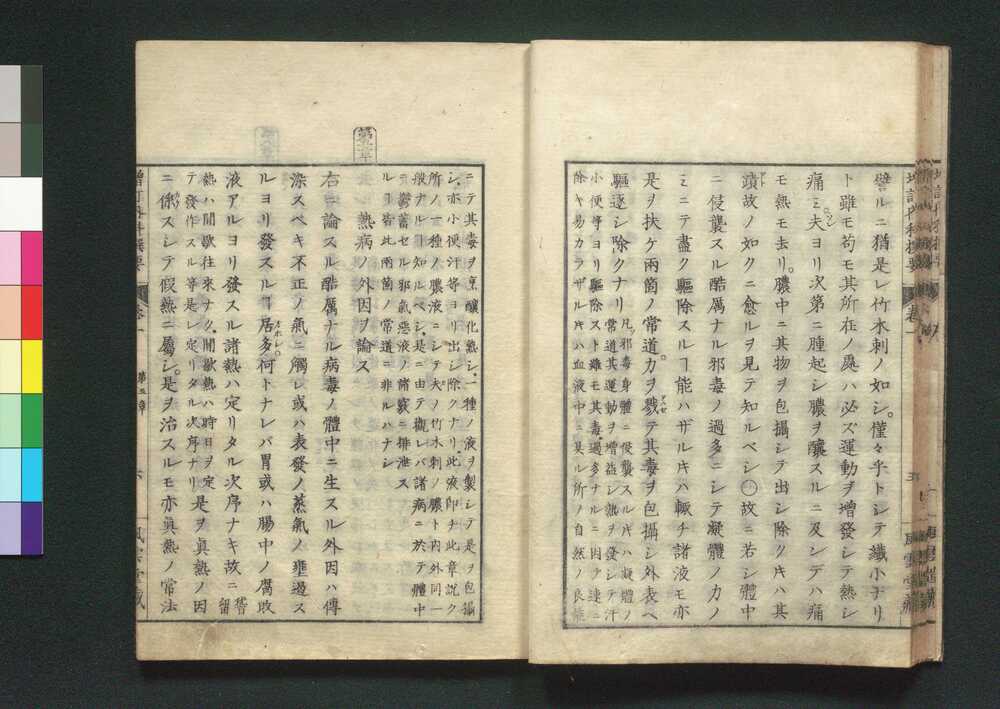 譬ルニ猶是レ竹木刺ノ如シ。僅々乎トシテ纖小ナリ
ト雖モ苟モ其所在ノ處ハ必ズ運動ヲ増發シテ熱シ
痛ミ夫ヨリ次第ニ腫起シ膿ヲ釀スルニ及ンデハ痛
モ熱モ去リ。膿中ニ其物ヲ包攝シテ出シ除クキハ其
蹟故ノ如クニ愈ルヲ見テ知ルベシ○故ニ若シ體中
ニ侵襲スル酷厲ナル邪毒ノ過多ニシテ凝體ノカノ
ミニテ盡ク驅除スルヿ能ハザルキハ輙チ諸液モ亦
是ヲ扶ケ兩箇ノ常道。力ヲ戮テ其毒ヲ包攝シ外表ヘ
驅逐シ除クナリ
凡ソ邪毒身體ニ侵襲スルキハ凝體ノ
常道其運動ヲ増益シ熱ヲ發シテ汗
小便等ヨリ驅除スト雖モ其毒過多ナルニ因テ速ニ
除キ易カラザルキハ血液中ニ具ル所ノ自然ノ良能
五
ニテ其毒ヲ烹釀化熟シ。一種ノ液ヲ製シテ是ヲ包攝
シ。亦小便汗等ヨリ出シ除クナリ此液即チ此章説ク
所ノ一種ノ膿液ニシテ夫ノ竹木刺ノ膿ト内外同一
般ナルヿ知ルベシ。是ニ由テ觀レバ諸病ニ於テ體中
ニ鬱蓄セル邪氣惡液ノ諸竅ニ排泄ス
ルヿ皆此兩箇ノ常道ニ非ルハナシ
第五章
熱病ノ外因ヲ論ス
右ニ論スル酷厲ナル病毒ノ體中ニ生スル外因ハ傳
染スベキ不正ノ氣ニ觸レ或ハ表發ノ蒸氣ノ壅遏ス
ルヨリ發スルヿ居多何トナレバ胃或ハ腸中ノ腐敗
液アルヨリ發スル諸熱ハ定リタル次序ナキ故ニ
稽
留
熱ハ間歇往來ナク。間歇熱ハ時日ヲ定
テ發作スル等是レ定リタル次序ナリ
是ヲ眞熱ノ因
ニ係スシテ假熱ニ屬シ。是ヲ治スルモ亦眞熱ノ常法
第五章
六